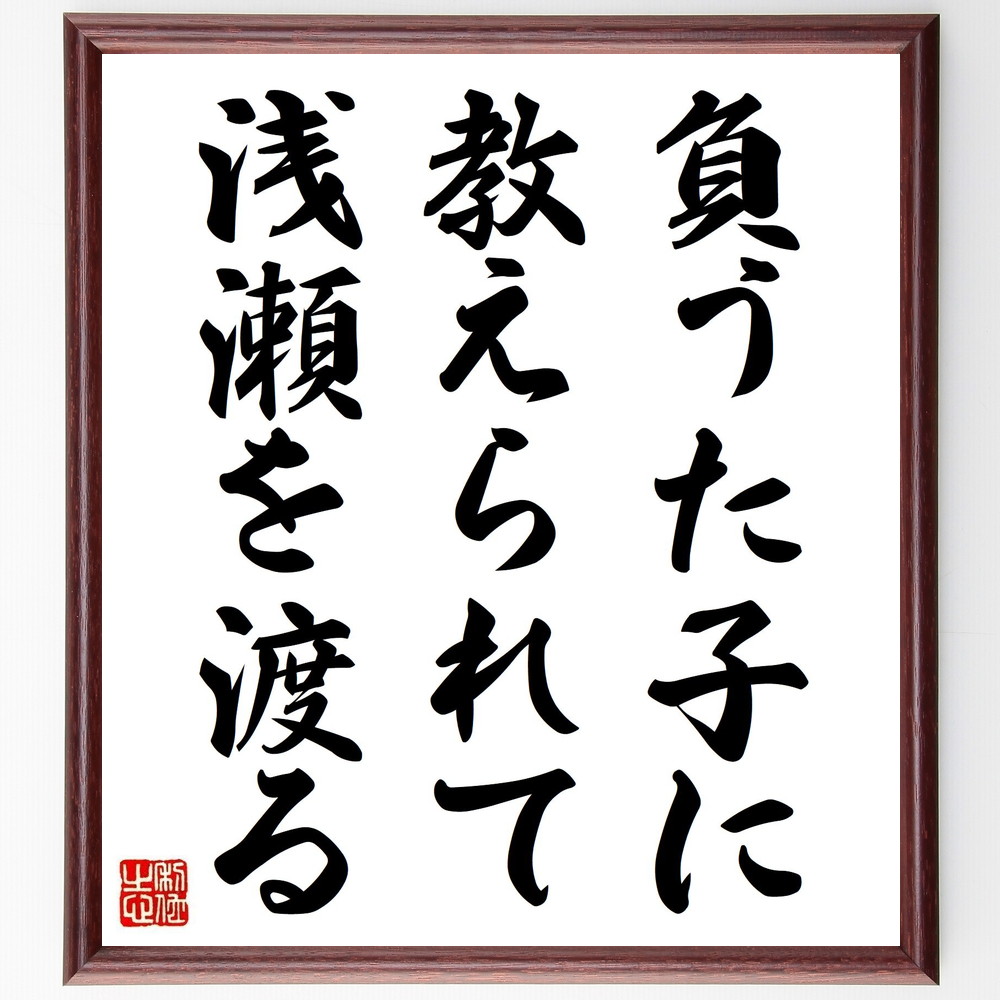 負うた子に
教えられて
浅瀬を渡る